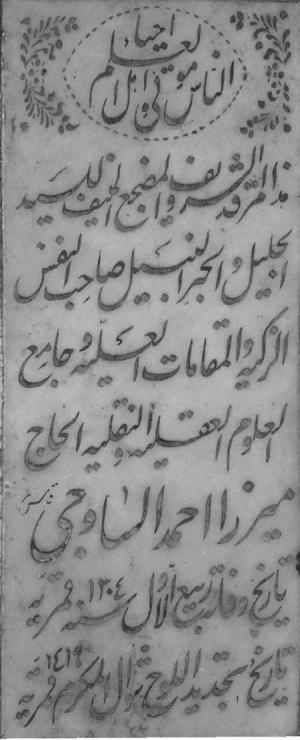 الناس موتى و اهل العلم احياء
هذا المرقد الشريف و المضجع المنيف للسيد
الجليل و الحبر النبيل صاحب النفس
الزكيه و المقامات العليه و جامع
العلوم العقليه و النقليه الحاج
ميرزا احمد الساوجى
تاريخ وفاته ربيع الاول سنه ١٣٠٤ قمريه
تاريخ تجديد اللوح شوال المكرم ١٤١٩ قمريه